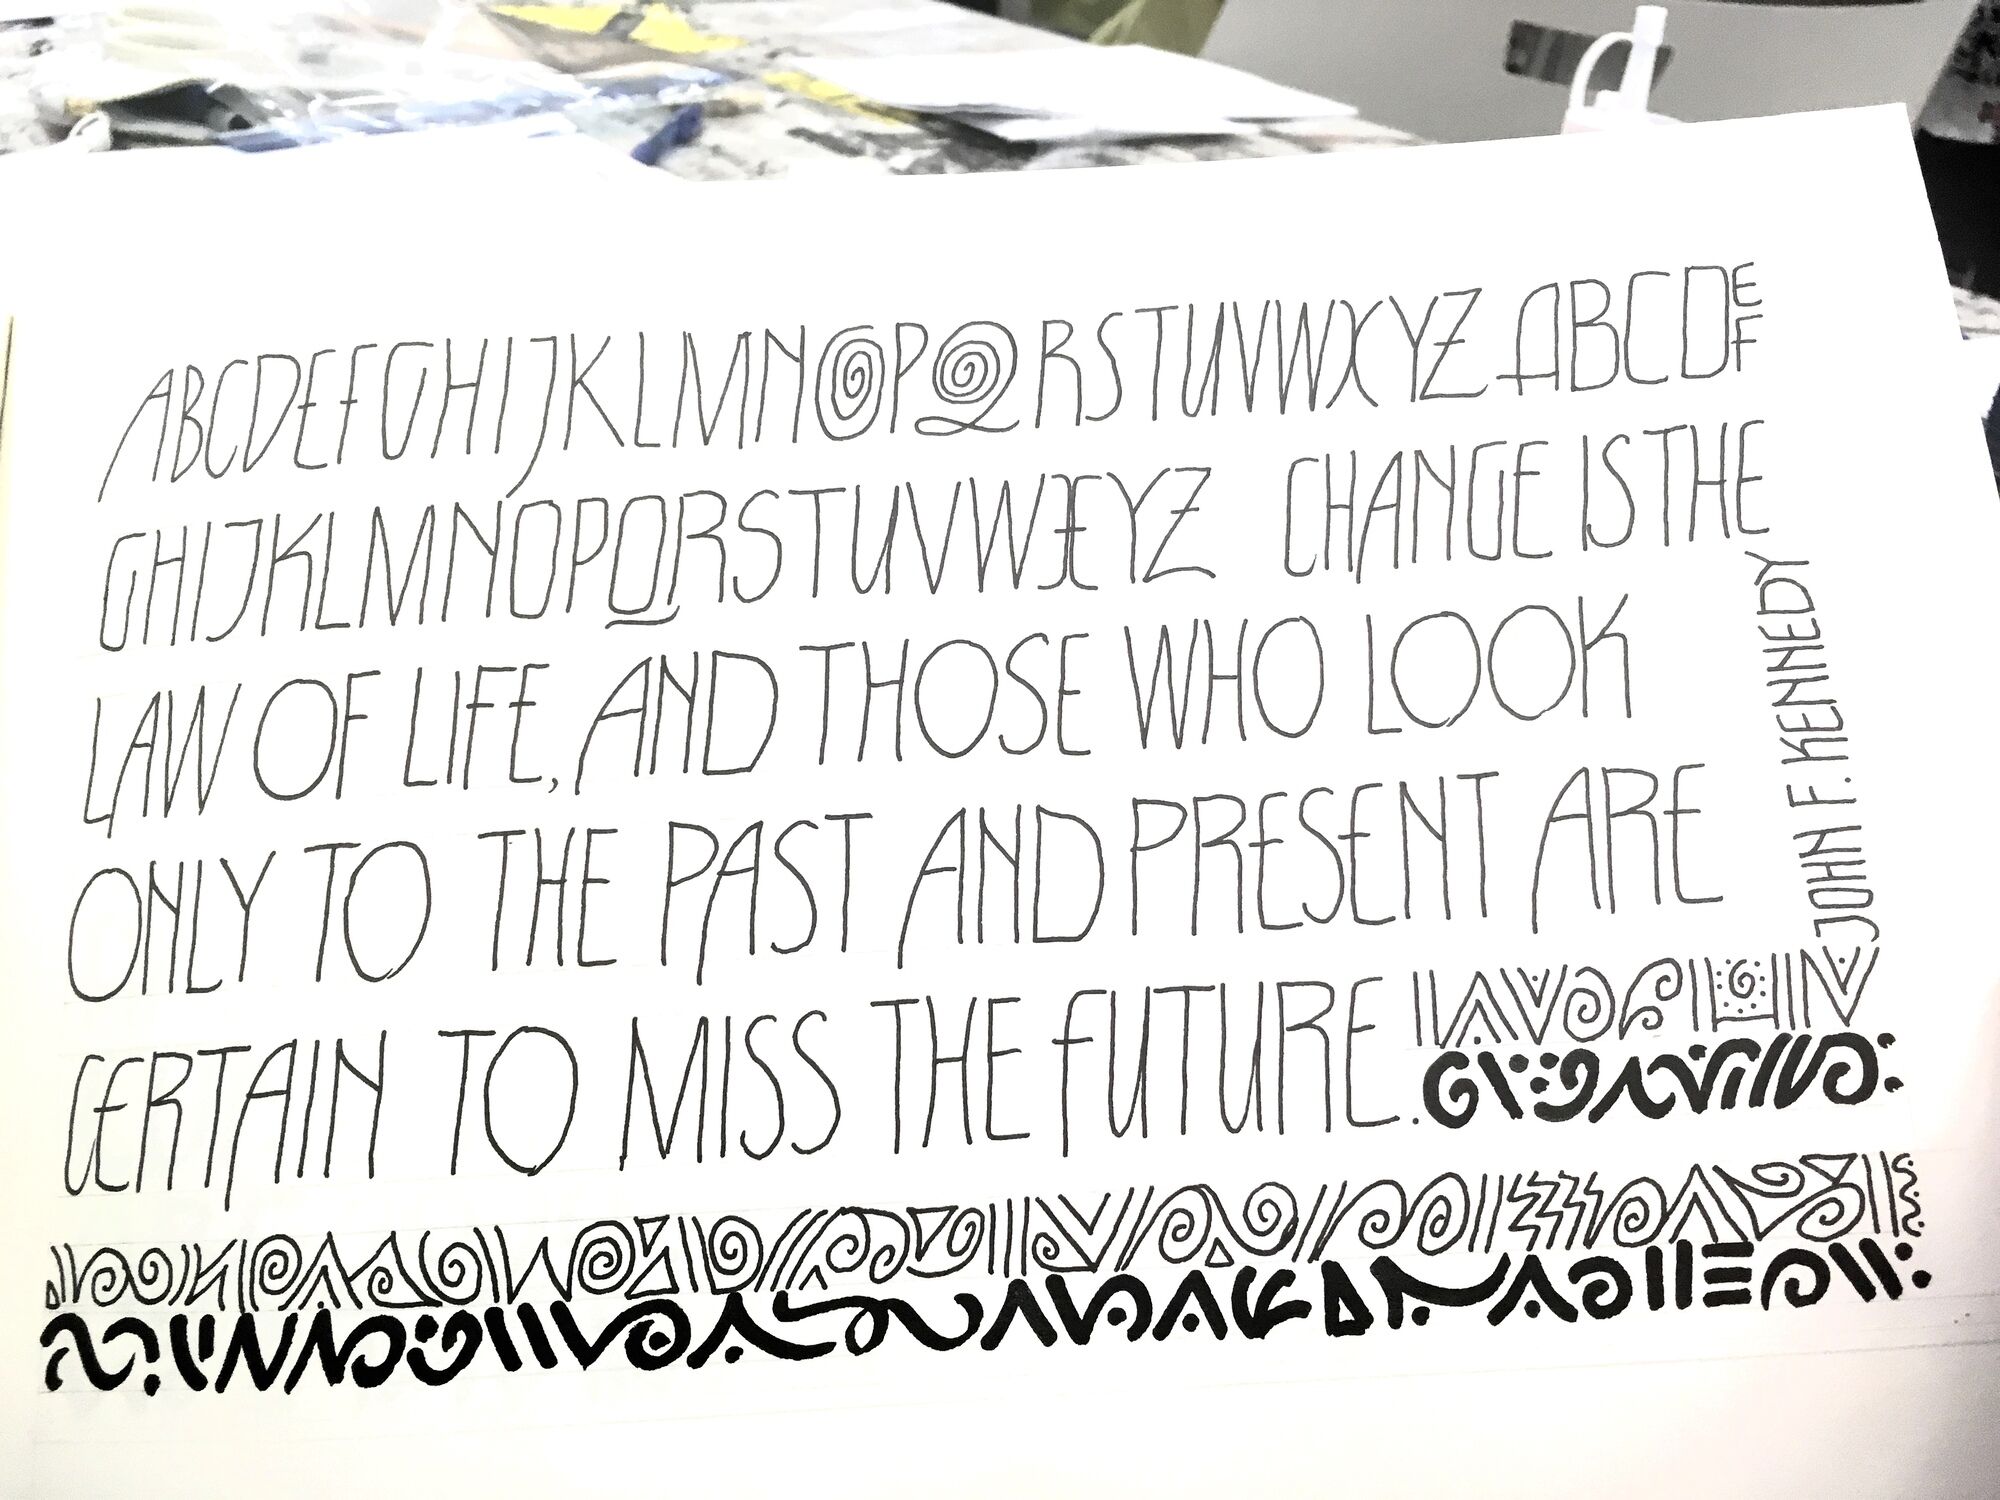 ABCDEFGHIJKLMNOPQRSTUVWXYZ ABCDEF
GHIJKLMNOPQRSTUVWXYZ CHANGE IS THE
LAW OF LIFE, AND THOSE WHO LOOK
ONLY TO THE PAST AND PRESENT ARE
CERTAIN TO MISS THE FUTURE.
JOHN F. KENNEDY